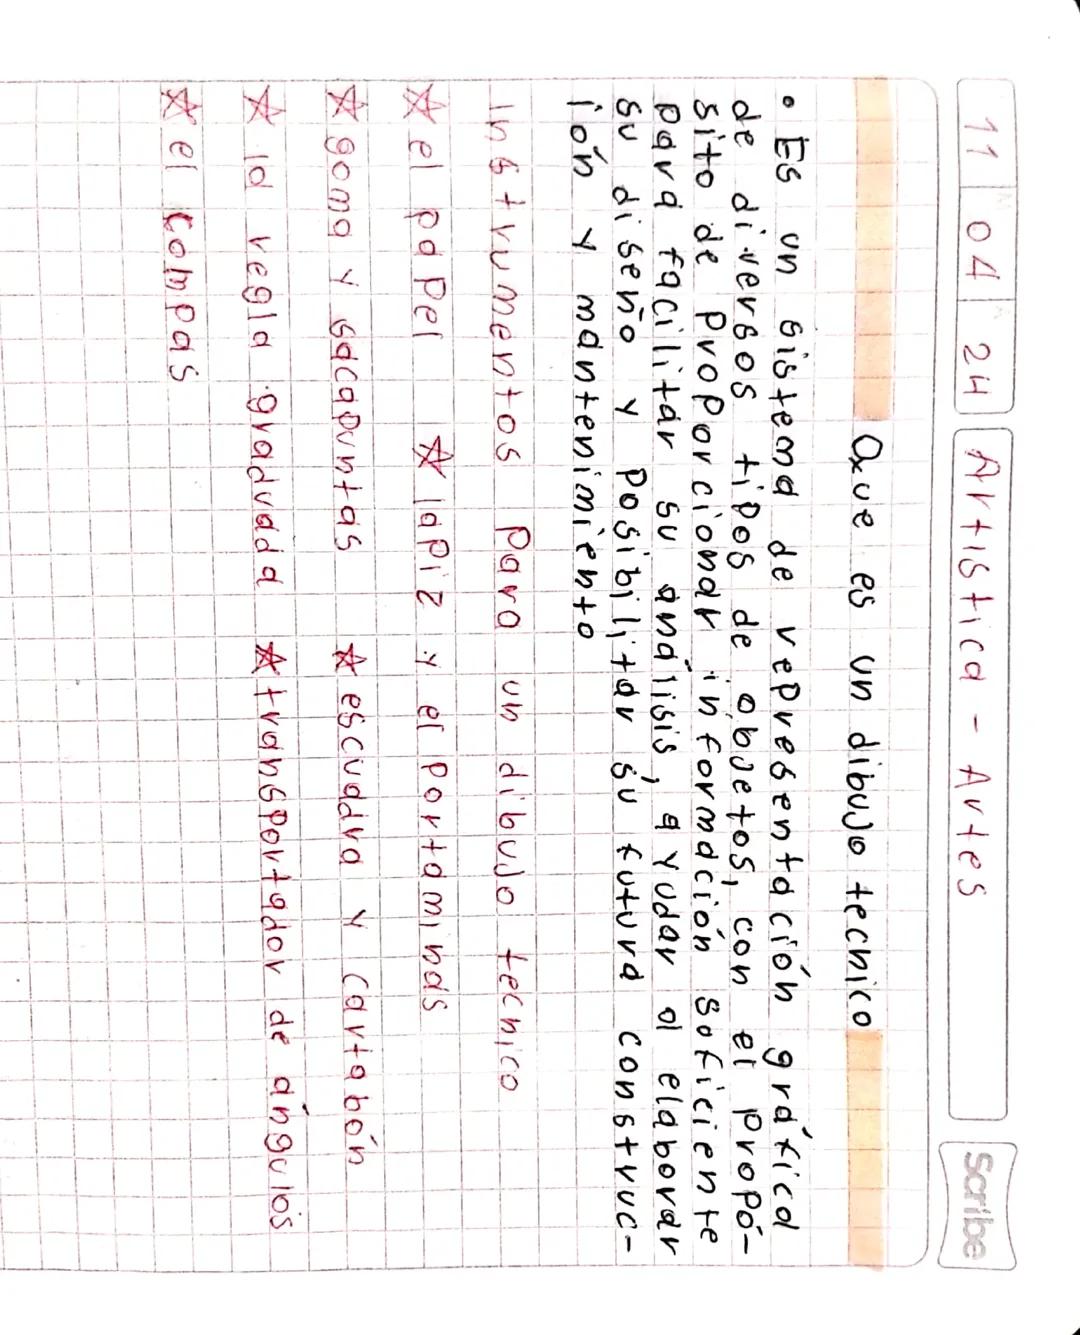 11 04 24 Artistica - Artes Scribe
Que es un dibujo tecnico
• Es un sistema de representación gráfica
de diversos tipos de objetos, con el propó-
sito de proporcionar información soficiente
para facilitar su análisis, ayudar a elaborar
su diseño y posibilitar su futura construc-
ión y mantenimiento
instrumentos para un dibujo tecnico
☆ el papel ☆ lapiz y el portaminas
☆ goma y sacapuntas ☆ escuadra y cartabón
☆ la regla graduada ☆ transportador de ángulos
☆ el compas